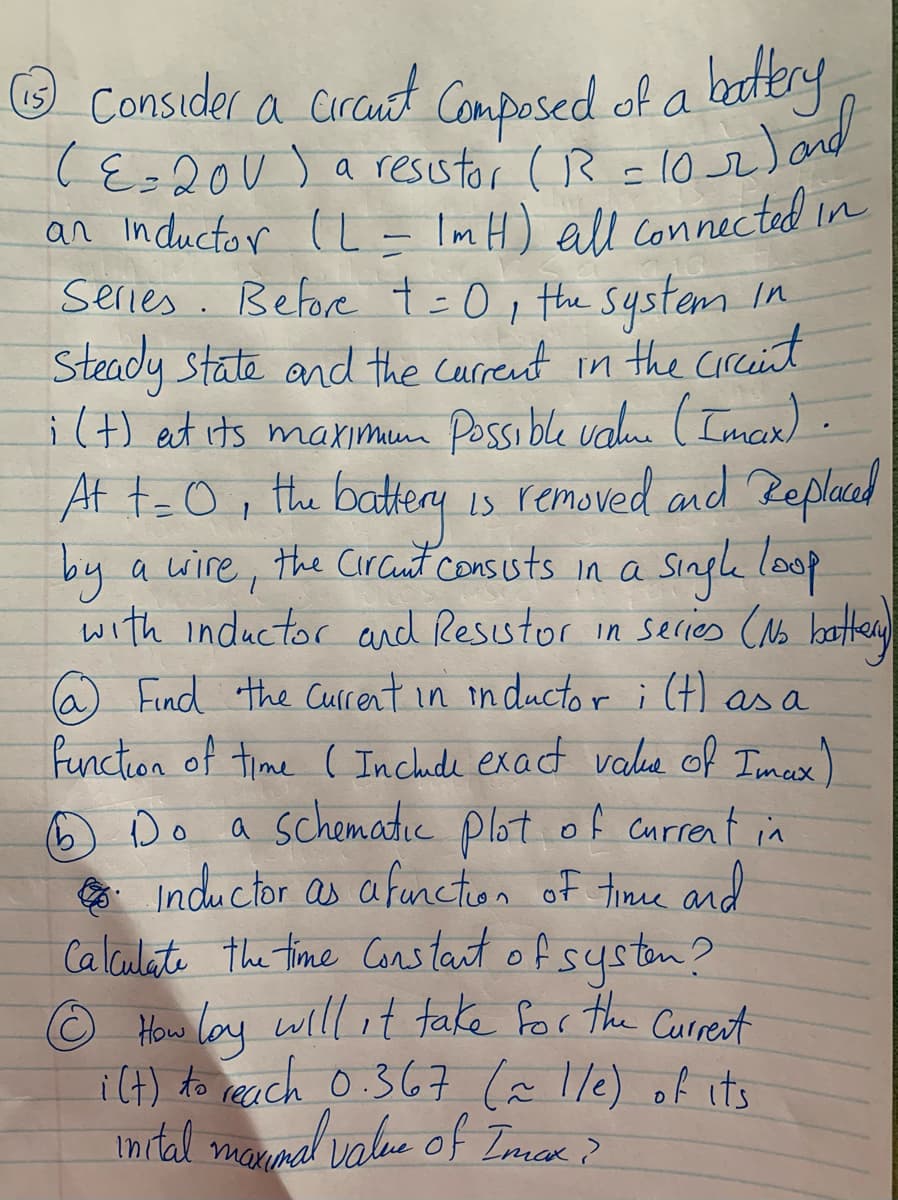 ⑮ Consider a Circuit Composed of a battery
( ℰ = 20V ) a resistor ( R = 10 Ω ) and
an inductor ( L = 1mH ) all connected in
Series . Before t = 0 , the system in
Steady state and the current in the circuit
i(t) at its maximum Possible value (Imax) .
At t = 0 , the battery is removed and Replaced
by a wire , the Circuit consists in a Single loop
with inductor and Resistor in series (No battery)
ⓐ Find the Current in inductor i (t) as a
function of time ( Include exact value of Imax)
ⓑ Do a Schematic plot of current in
inductor as a function of time and
Calculate the time Constant of system?
ⓒ How long will it take for the Current
i(t) to reach 0.367 (≈ 1/e) of its
inital maximal value of Imax ?